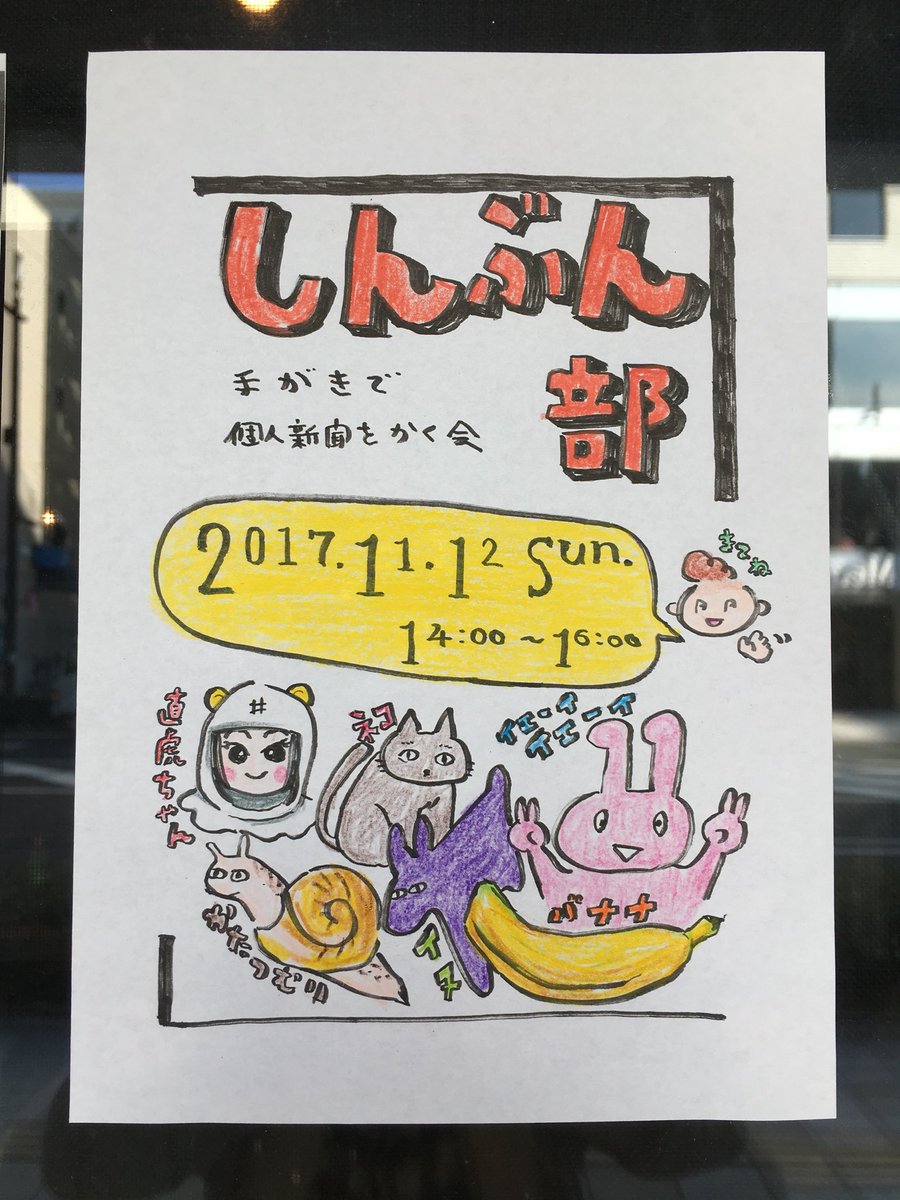 しんぶん
部
手がきで
個人新聞をかく会
2017.11.12 Sun.
14:00～16:00
きてね
直虎ちゃん
#
ネコ
イェーイ
イエーイ
かたつむり
イヌ
バナナ